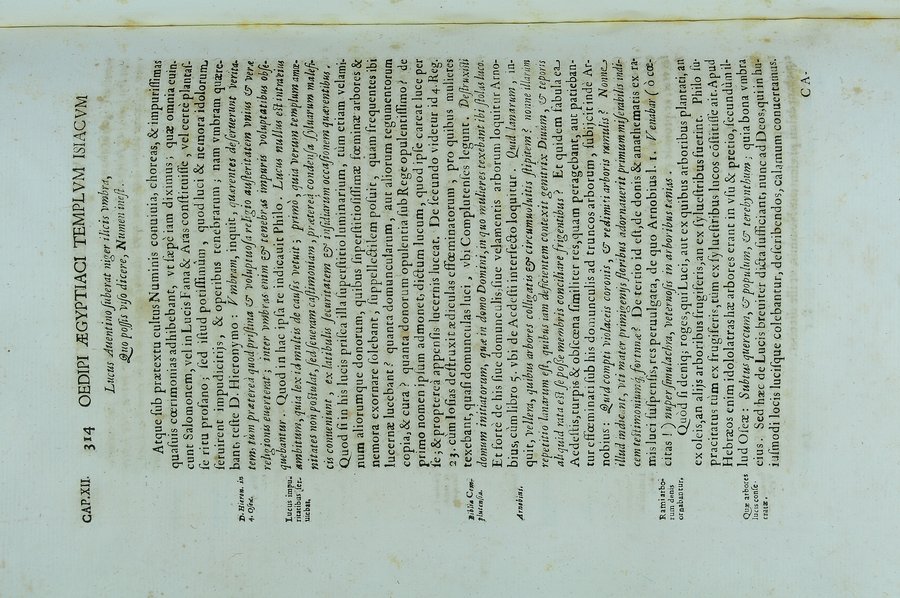 CAP. XII. 314 OEDIPI ÆGYPTIACI TEMPLVM ISIACVM
Lucus Auentino suberat niger ilicis vmbra,
Quo possis viso dicere, Numen inest.
Atque sub prætextu cultus Numinis conuiuia, choreas, & impurissimas
quasuis cœrimonias adhibebant, vt sæpè iam diximus; quæ omnia euin-
cunt Salomonem, vel in Lucis Fana & Aras constituisse, vel certè plantas-
se ritu profano; sed istud potissimùm, quod luci & nemora idolorum
seruirent impudicitijs, & operibus tenebrarum; nam vmbram quære-
D. Hieron. in
4. Osee.
bant, teste D. Hieronymo: Vmbram, inquit, quærentes deseruerunt verita-
tem: tùm præterea quod pristina & voluptuosa religio austeritatem vnius & veræ
religionis euerterat; inter vmbras enim & tenebras impuris voluptatibus obse-
Lucus impu-
ritatibus ser-
uiebat.
quebantur. Quod in luc ipsa te indicauit Philo. Lucus nullus est intra eius
ambitum, quia lex id multis de causis vetuit; primò, quia verum templum amœ-
nitates non postulat, sed seueram castimoniam, præterea condensa syluarum malefi-
cis conueniunt, ex latibulis securitatem & insidiarum occasionem quærentibus.
Quod si in his lucis prisca illa superstitio luminarium, tùm etiam velami-
num aliorumque donorum, quibus superstitiosissimæ fœminæ arbores &
nemora exornare solebant, suppellectilem posuit, quàm frequentes ibi
lucernæ lucebant? quanta domuncularum, aut aliorum tegumentorum
copia, & cura? quanta donorum opulentia sub Rege opulentissimo? de
primo nomen ipsum admonet, dictum lucum, quod ipse careat luce per
se; & proptereà appensis lucernis luceat. De secundo videtur id 4. Reg.
23. cùm Iosias destruxit ædiculas effœminatorum, pro quibus mulieres
Biblia Com-
plutensia.
texebant, quasi domunculas luci, vbi Complutenses legunt. Destruxit
domum initiatorum, quæ in domo Domini, in quo mulieres texebant ibi stolas luco.
Et forte de his siue domunculis, siue velamentis arborum loquitur Arno-
Arnobius.
bius, cùm libro 5. vbi de Acdesti interfecto loquitur. Quid lanarum, in-
quit, vellera, quibus arbores colligatis & circumuoluitis stipitem? nonne illarum
repetitio lanarum est, quibus iam deficientem contexit genitrix Diuum, & teporis
aliquid rata est se posse membris conciliare frigentibus? Et quidem fabula ea
Acdestis, turpis & obscœna similiter res, quam peragebant, aut patieban-
tur effœminati sub his domunculis ad truncos arborum, subijcit inde Ar-
nobius: Quid compti violaceis coronis, & redimiti arboris ramulis? Nonne
illud indicant, vti mater primigenijs floribus adornauerit primum miserabilis indi-
cem testimonium fortunæ? De tertio id est, de donis & anathematis ex ra-
Rami arbo-
rum donis
ornabantur.
mis luci suspensis, res peruulgata, de quo Arnobius l. 1. Venabar (o cæ-
citas!) nuper simulachra, veternosis in arboribus tænias.
Quod si deniq; roges, qui Luci, aut ex quibus arboribus plantati, an
ex oleis, an alijs arboribus frugiferis, an ex syluestribus fuerint. Philo su-
pracitatus tùm ex frugiferis, tùm ex syluestribus lucos cōstitisse ait. Apud
Hebræos enim idololatras hæ arbores erant in vsu & pretio, secundùm il-
Quæ arbores
lucis conse-
cratæ.
lud Oseæ: Subtus quercum, & populum, & terebynthum; quia bona vmbra
eius. Sed hæc de Lucis breuiter dicta sufficiant; nunc ad Deos, qui in hu-
iusmodi locis lucisque colebantur, describendos, calamum conuertamus.
CA.